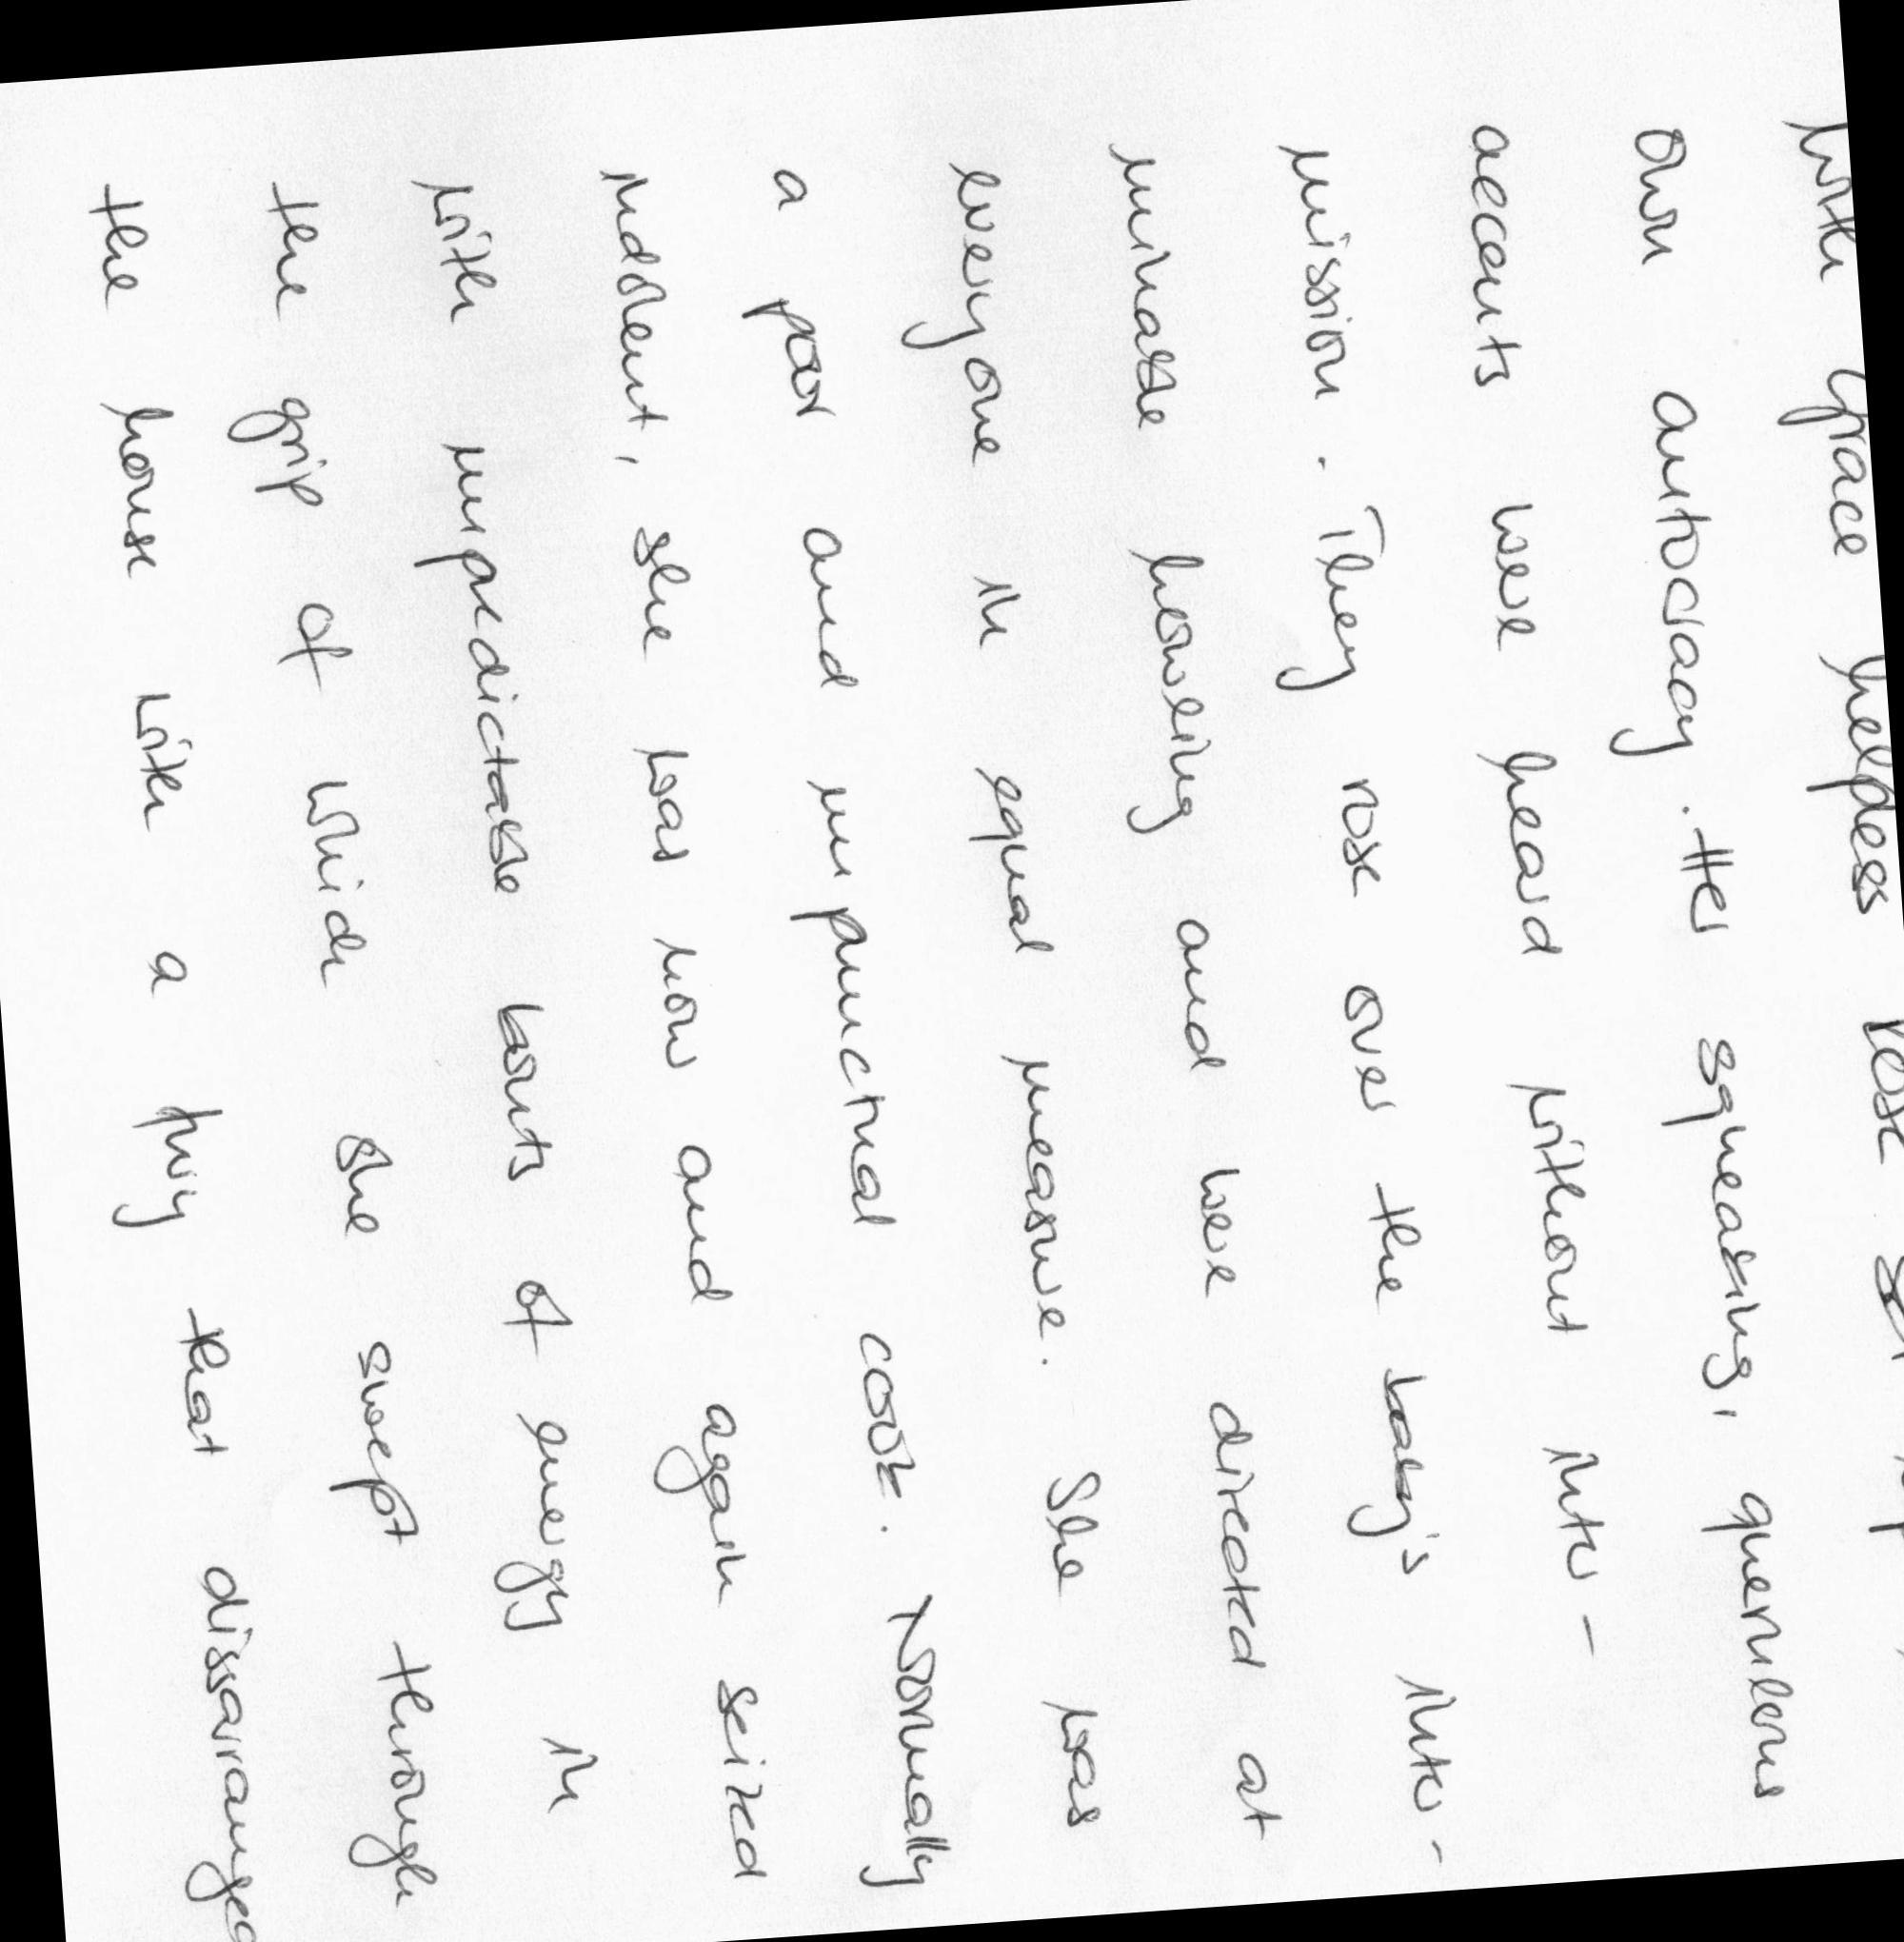 With Grace helpless Rose set up
own autocracy. Her squeaking, querulous
accents were heard without inter-
mission. They rose over the baby's inter-
minable howling and were directed at
everyone in equal measure. She was
a poor and unpunctual cook. Normally
indolent, she was now and again seized
with unpredictable bouts of energy in
the grip of which she swept through
the house with a fury that dissarranged